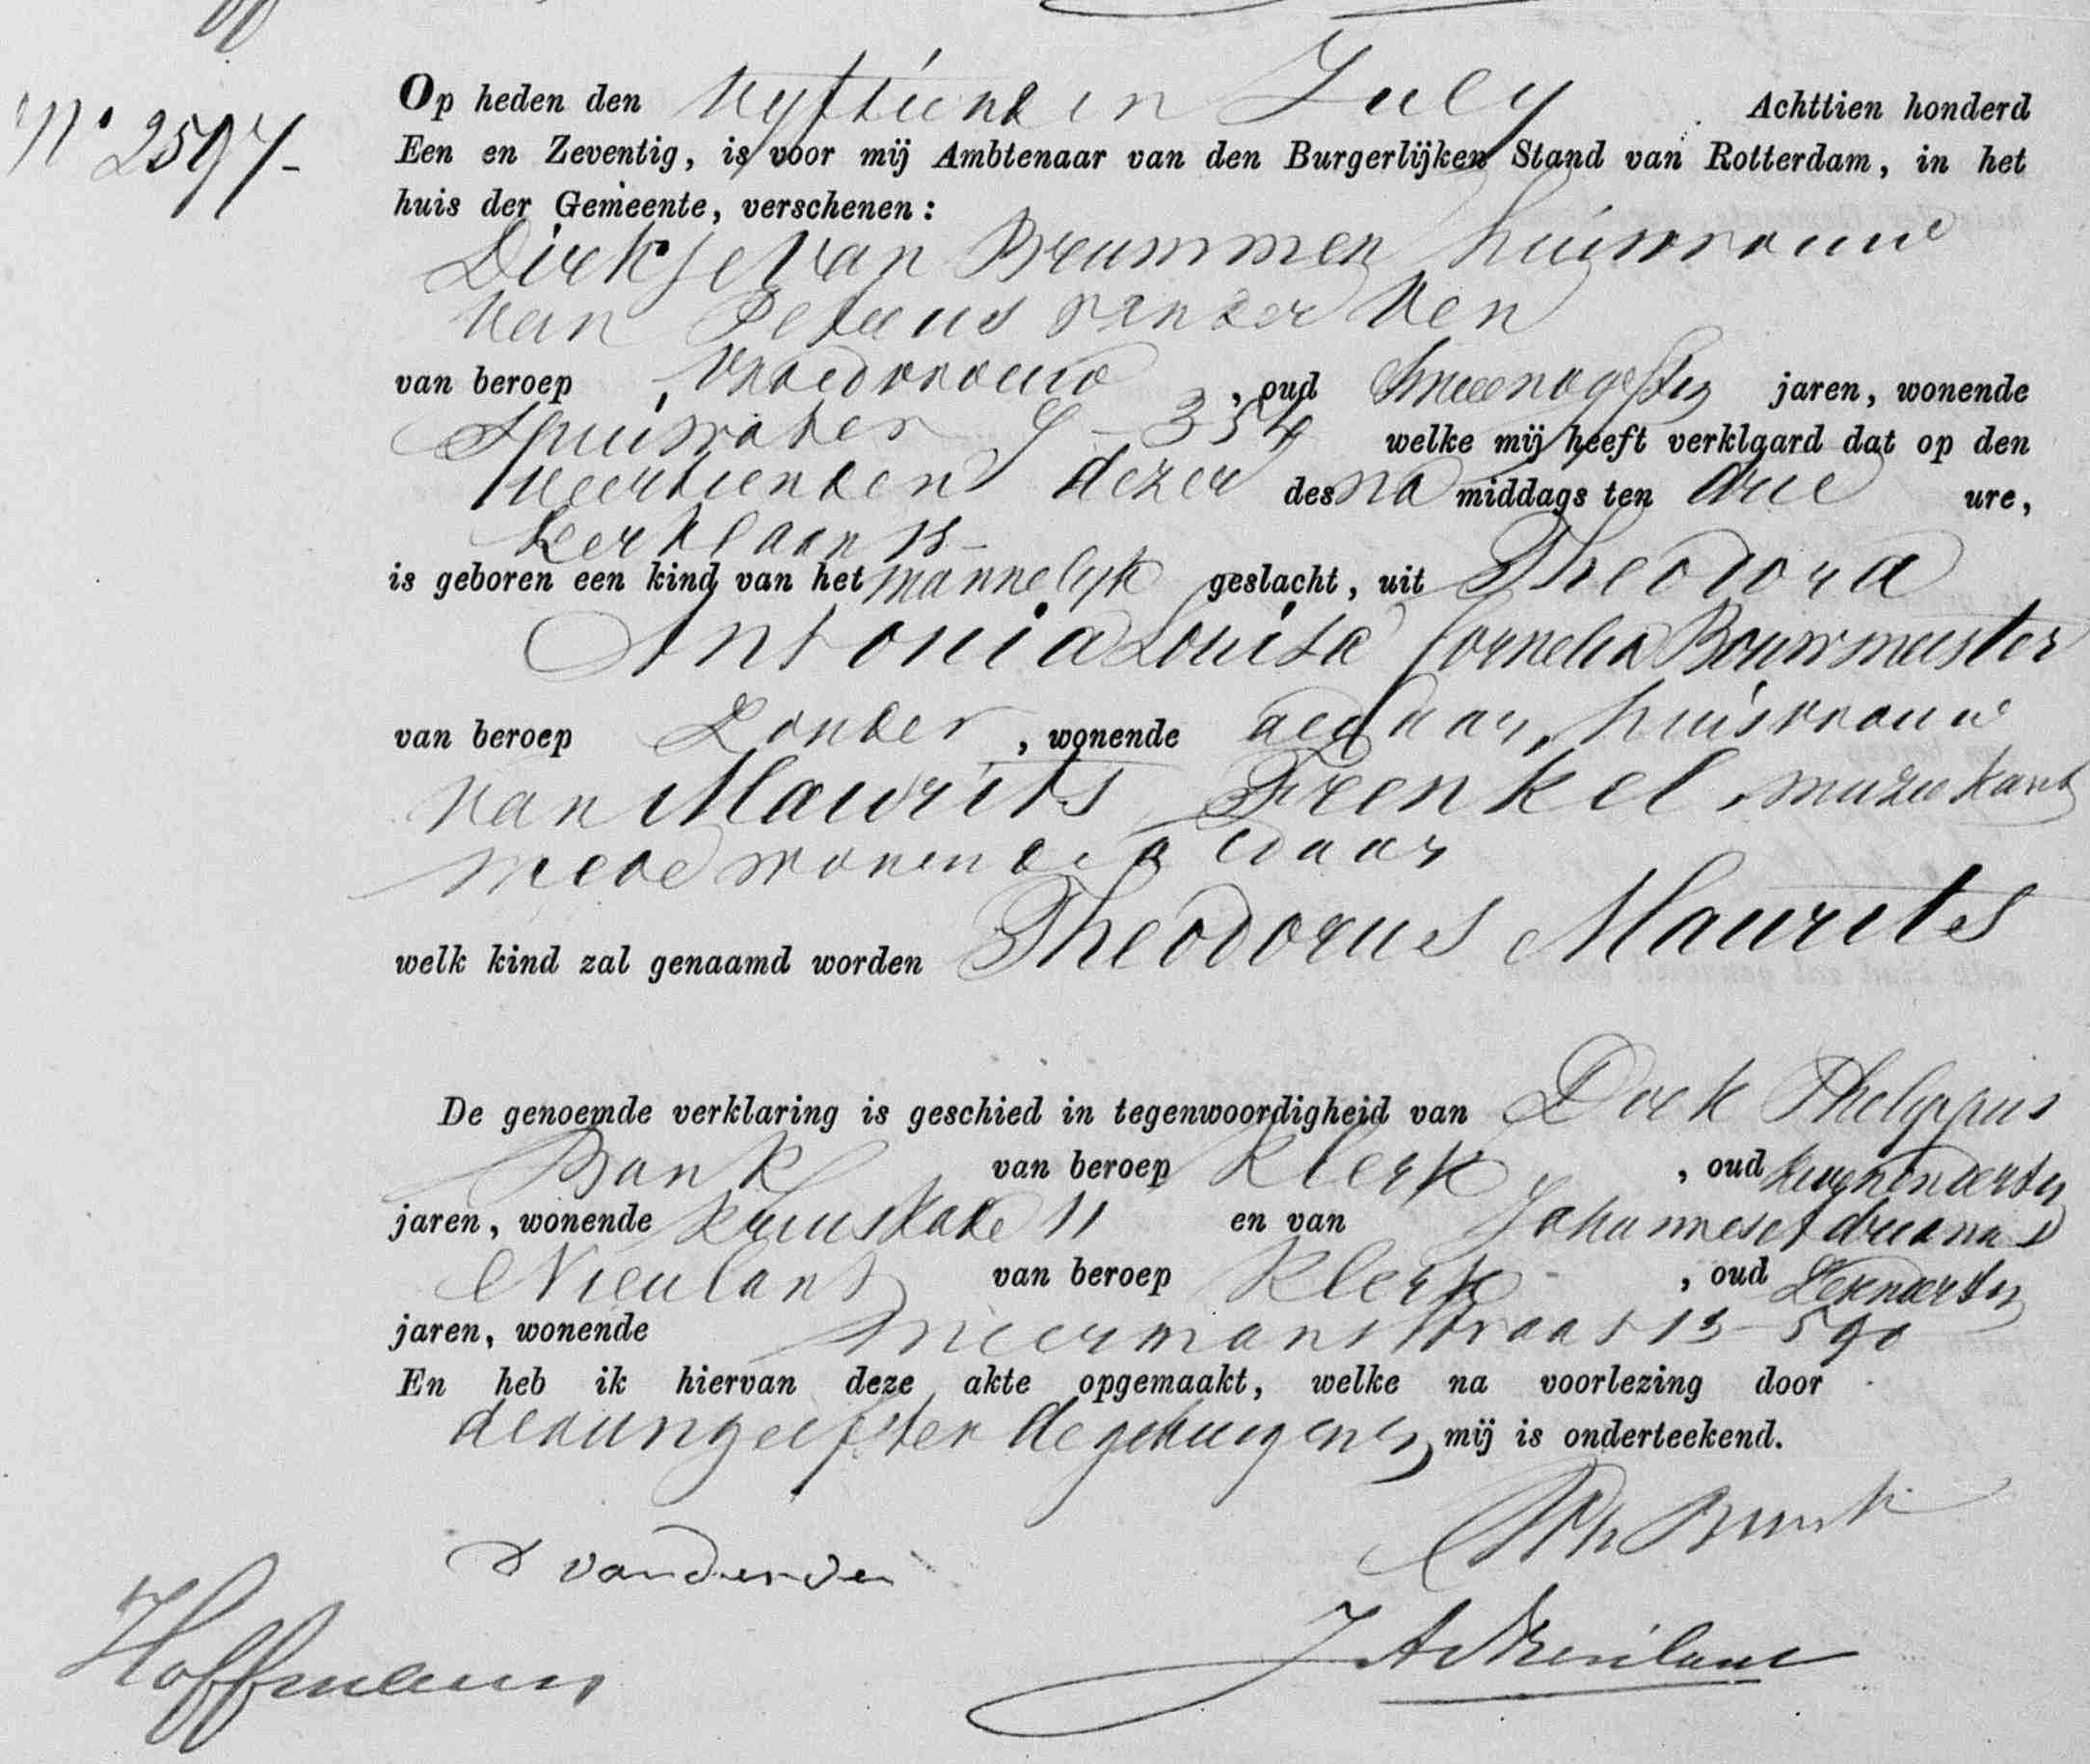 No 2597-
Op heden den Vyftienden July Achttien honderd
Een en Zeventig, is voor mij Ambtenaar van den Burgerlijken Stand van Rotterdam, in het
huis der Gemeente, verschenen:
Dirkje van Brummen huisvrouw
van Petrus van der Ven
van beroep Vroedvrouw, oud jaren, wonende
Spuiwater 354 welke mij heeft verklaard dat op den
veertienden dezer des na middags ten drie ure,
Kerklaan 13-
is geboren een kind van het mannelyk geslacht, uit Theodora
Antonia Louisa Cornelia Bouwmeester
van beroep Zonder, wonende aldaar, huisvrouw
van Maurits Frenkel, muzikant
mede wonende aldaar
welk kind zal genaamd worden Theodorus Maurits
De genoemde verklaring is geschied in tegenwoordigheid van Dirk Philippus
van beroep Klerk, oud jaren, wonende Kruiskade 11 en van Johannes Adrianus
Nieulant van beroep Klerk, oud Zesenveertig
jaren, wonende Meermanstraat 13-590
En heb ik hiervan deze akte opgemaakt, welke na voorlezing door
de aangeefster de getuigen en mij is onderteekend.
D van der Ven
Hoffmann
J A Nieulant